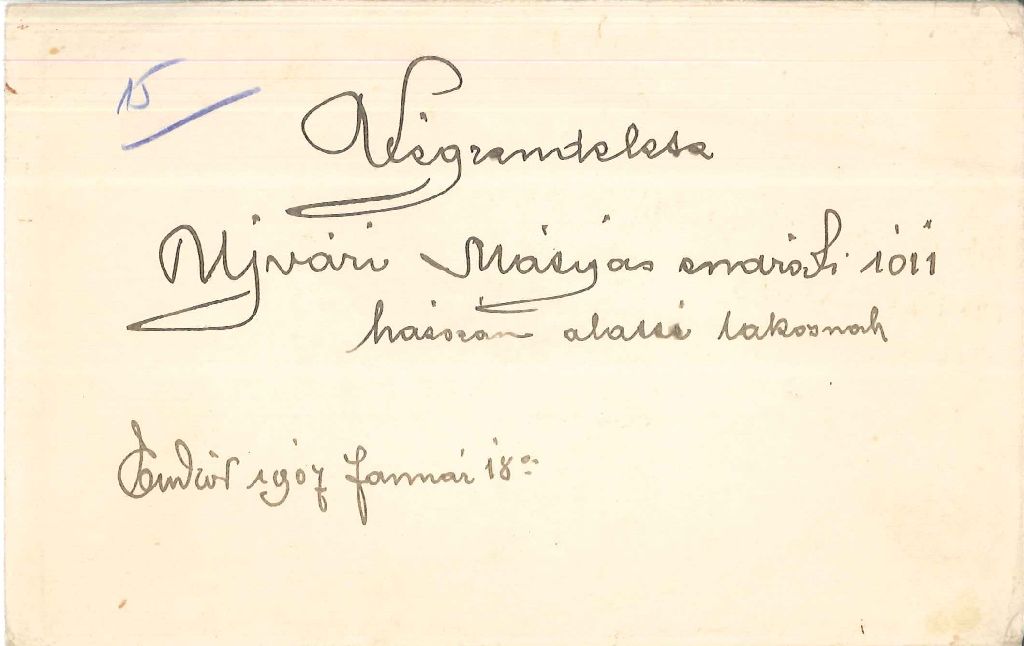 15
Végrendelete
Ujvári Mátyás endrődi 1011
házszám alatti lakosnak
Endrőd 1907 Január 18án